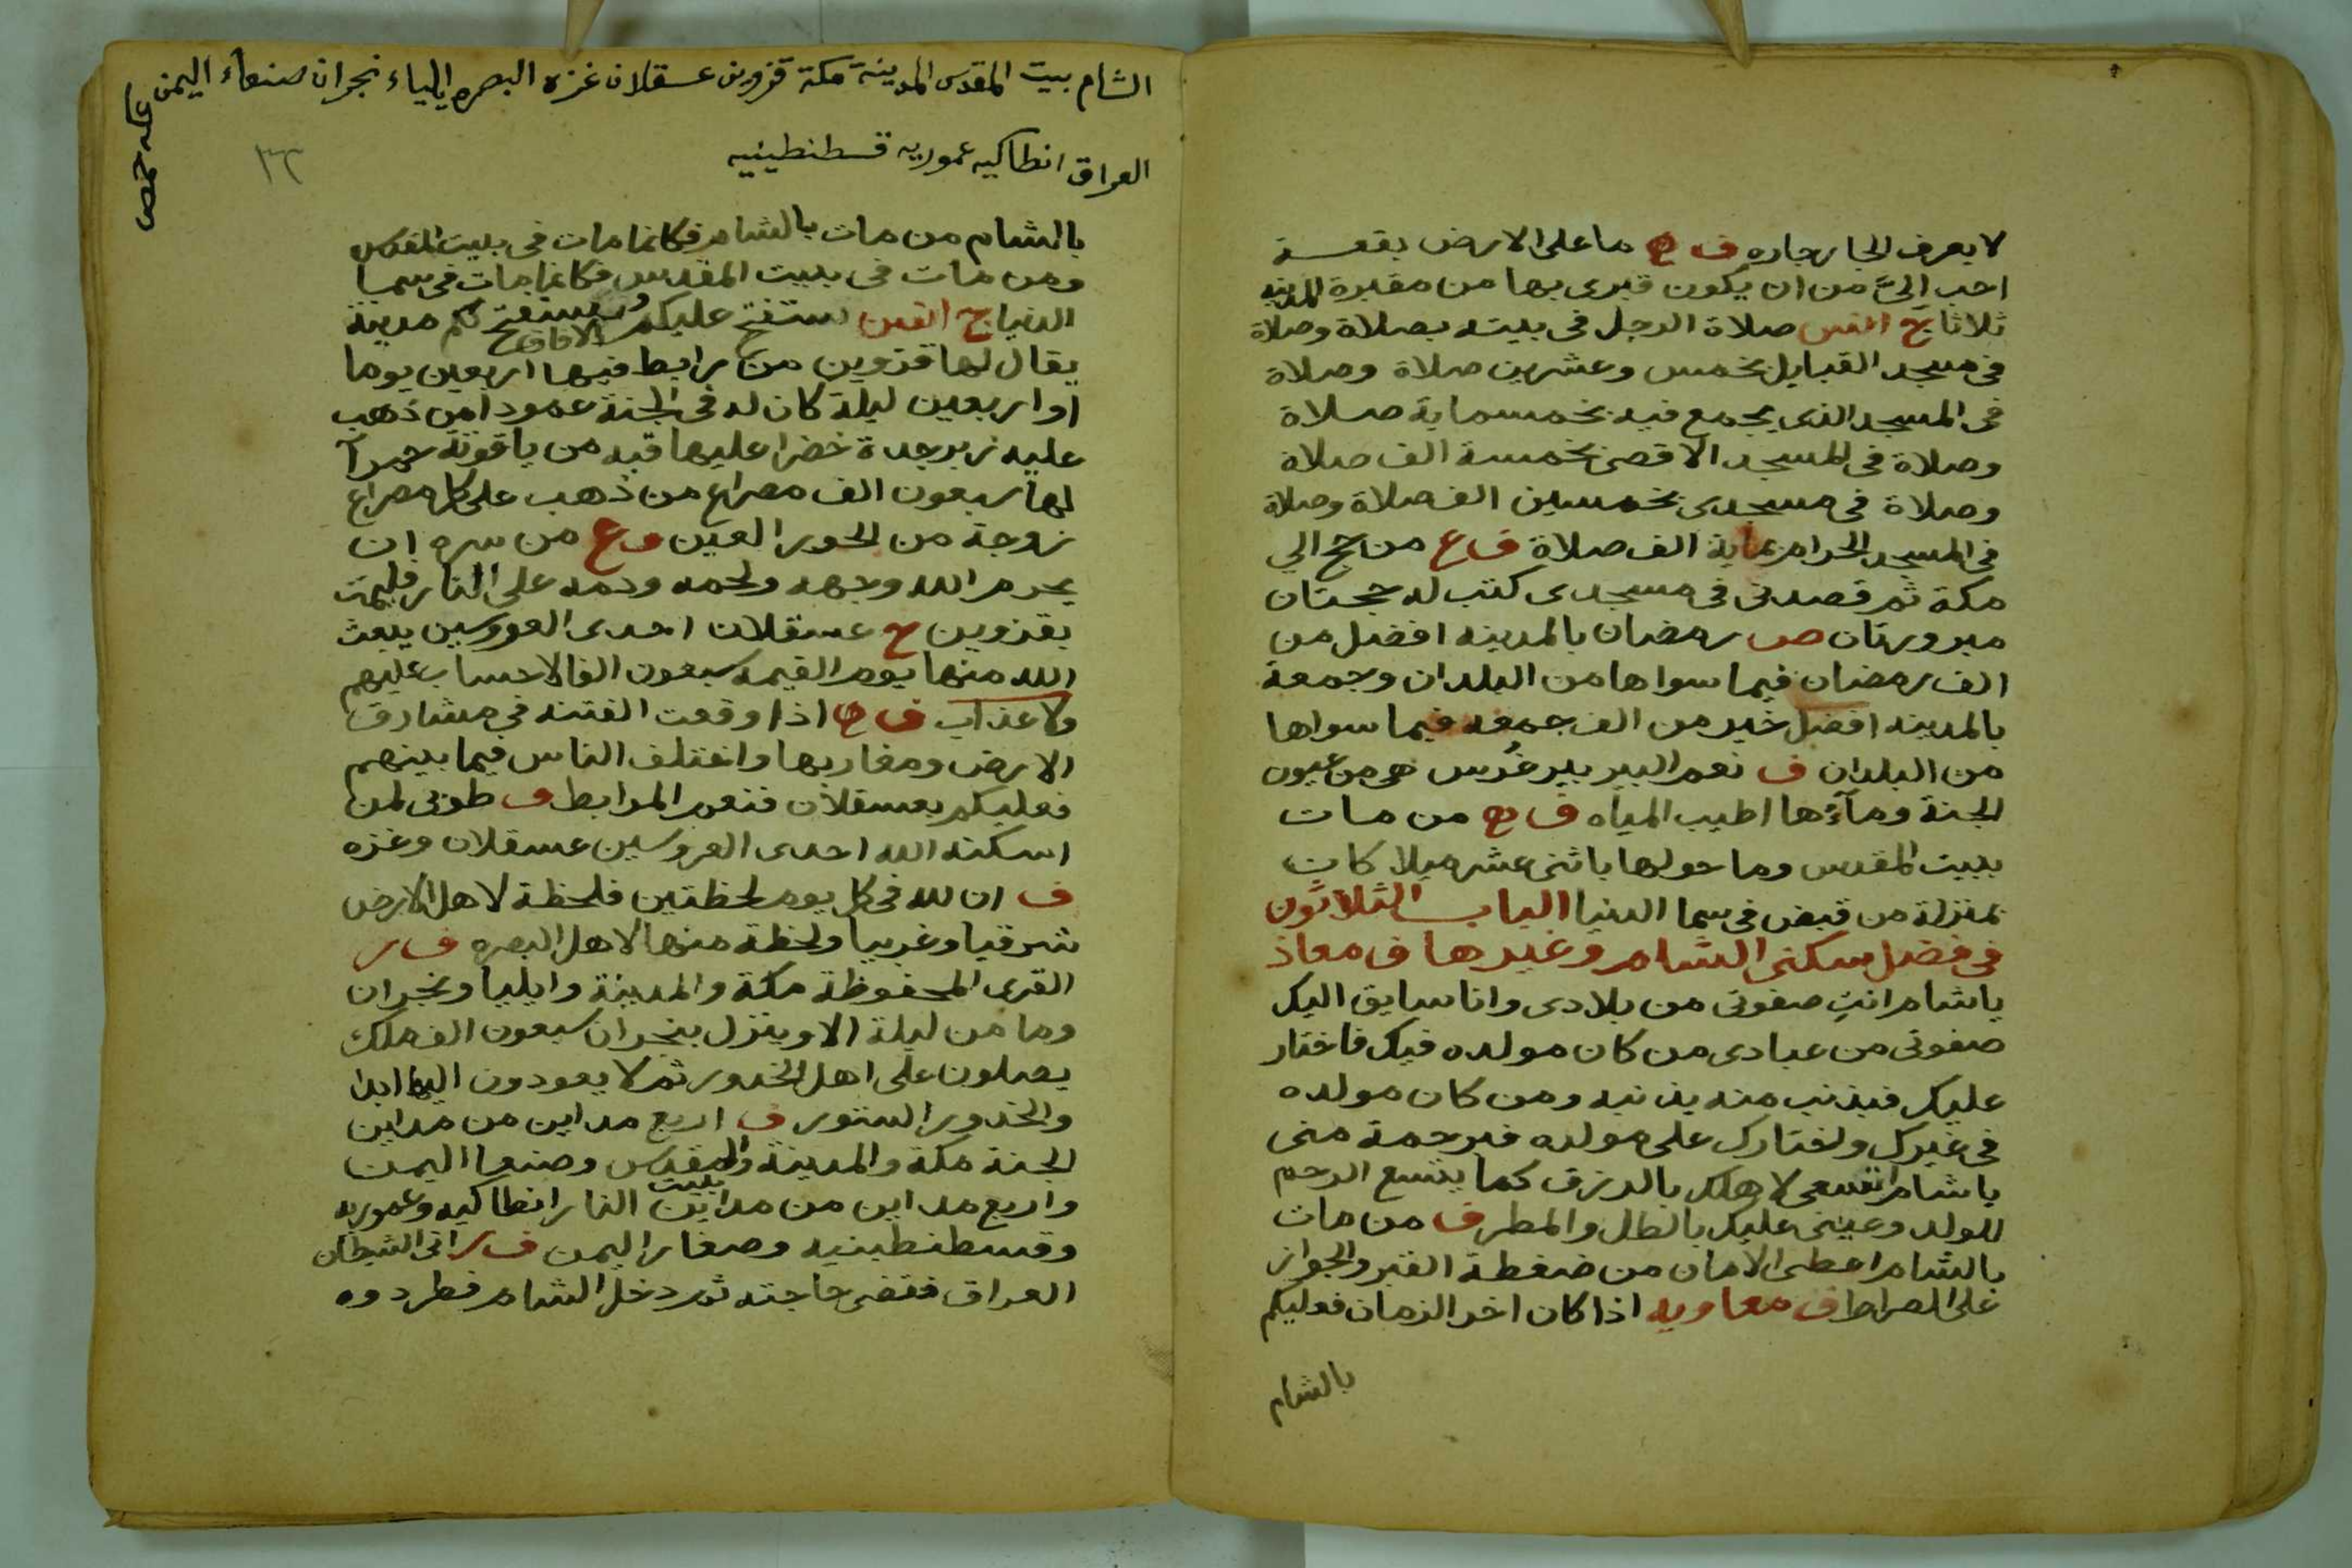 لا يعرف الجار جاره ف ح ما على الارض بقعة
احب اليَّ من ان يكون قبرى بها من مقبرة المدينه
ثلاثا ح انس صلاة الرجل فى بيته بصلاة وصلاة
فى مسجد القبايل بخمس وعشرين صلاة وصلاة
فى المسجد الذى يجمع فيه بخمسماية صلاة
وصلاة فى المسجد الاقصى بخمسة الف صلاة
وصلاة فى مسجدى بخمسين الف صلاة وصلاة
فى المسجد الحرام بماية الف صلاة ف ع من حج الي
مكة ثم قصدنى فى مسجدى كتب له حجتان
مبرورتان ص رمضان بالمدينه افضل من
الف رمضان فيما سواها من البلدان وجمعة
بالمدينه افضل خير من الف جمعه فيما سواها
من البلدان ف نعم البير بير غُرس هى من عيون
الجنة ومآؤها اطيب المياه ف ح من مات
ببيت المقدس وما حولها باثنى عشر ميلا كان
بمنزلة من قبض فى سما الدنيا الباب الثلاثون
فى فضل سكنى الشام وغيرها ف معاذ
ياشام انتِ صفوتى من بلادى وانا سايق اليك
صفوتى من عبادى من كان مولده فيك فاختار
عليك فبذنب منه يذنبه ومن كان مولده
فى غيرك واختارك على مولده فبرحمة منى
ياشام اتسعى لاهلك بالرزق كما يتسع الرحم
للولد وعينى عليك بالطل والمطر ف من مات
بالشام اعطى الامان من ضغطة القبر والجواز
على الصراط ف معاويه اذا كان اخر الزمان فعليكم
بالشام
الشام بيت المقدس المدينة مكة قزوين عسقلان غزه البصره ايلياء نجران صنعاء اليمن
عكه حمص
العراق انطاكيه عموريه قسطنطينيه
٣٢
بالشام من مات بالشام فكانما مات فى بيت المقدس
ومن مات فى بيت المقدس فكانما مات فى سما
الدنيا ح انس ستفتح عليكم الافاق وستفتح لكم مدينة
يقال لها قزوين من رابط فيها اربعين يوما
او اربعين ليلة كان له فى الجنة عمودا من ذهب
عليه زبرجدة خضرا عليها قبه من ياقوتة حمرآ
لها سبعون الف مصراع من ذهب على كل مصراع
زوجة من الحور العين ف ع من سره ان
يحرم الله وجهه ولحمه ودمه على النار فليمت
بقزوين ح عسقلان احدى العروسين يبعث
الله منها يوم القيمه سبعون الفا لا حساب عليهم
ولا عذاب ف ح اذا وقعت الفتنه فى مشارق
الارض ومغاربها واختلف الناس فيما بينهم
فعليكم بعسقلان فنعم المرابط ف طوبى لمن
اسكنه الله احدى العروسين عسقلان وغزه
ف ان لله فى كل يوم لحظتين فلحظة لاهل الارض
شرقيا وغربيا ولحظة منها لاهل البصره ف ر
القرى المحفوظة مكة والمدينة وايليا ونجران
وما من ليلة الا وينزل بنجران سبعون الف ملك
يصلون على اهل الخدور ثم لا يعودون اليها ابدا
والخدور الستور ف اربع مداين من مداين
الجنة مكة والمدينة وبيت المقدس وصنعا اليمن
واربع مداين من مداين النار انطاكيه وعموريه
وقسطنطينيه وصفار اليمن ف ر اتى الشيطان
العراق فقضى حاجته ثم دخل الشام فطردوه